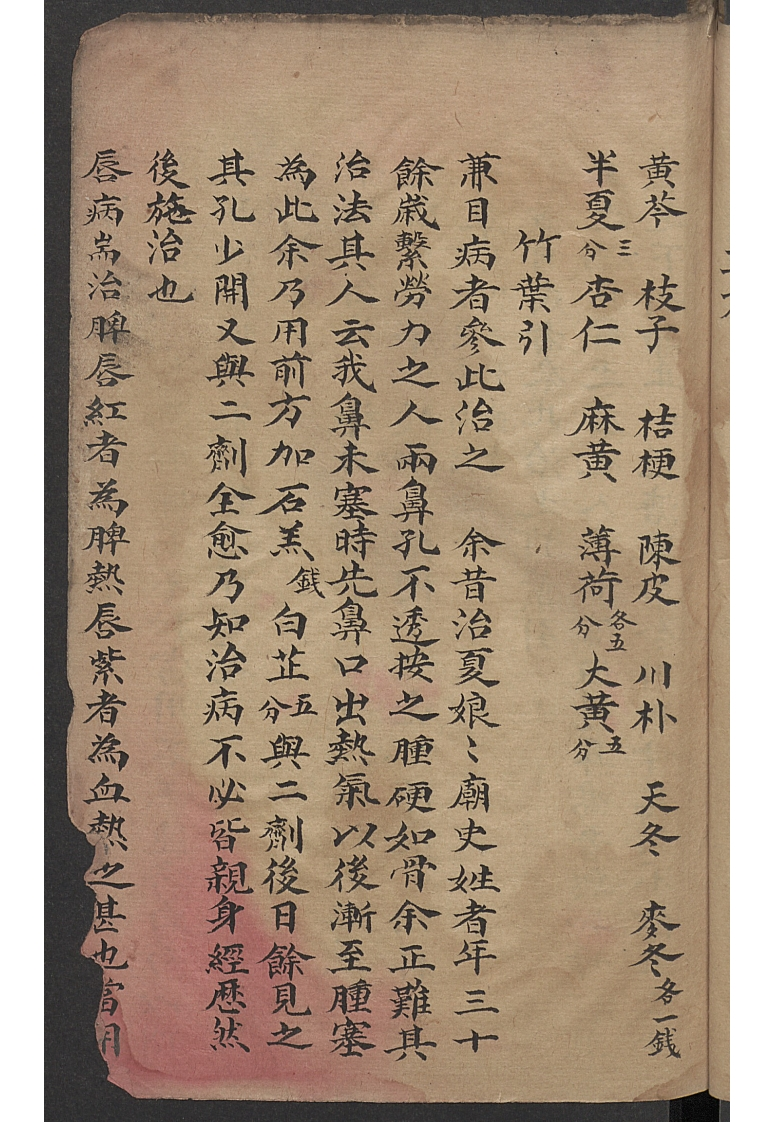 黃芩 枝子 桔梗 陳皮 川朴 天冬 麥冬各一錢
半夏三分 杏仁 麻黃 薄荷各五分 大黃五分
竹葉引
兼目病者參此治之 余昔治夏娘〻廟史姓者年三十
餘歲繫勞力之人兩鼻孔不透按之腫硬如骨余正難其
治法其人云我鼻未塞時先鼻口出熱氣以後漸至腫塞
為此余乃用前方加石羔錢白芷五分與二劑後日餘見之
其孔少開又與二劑全愈乃知治病不必皆親身經歷然
後施治也
唇病耑治脾唇紅者為脾熱唇紫者為血熱之甚也當用